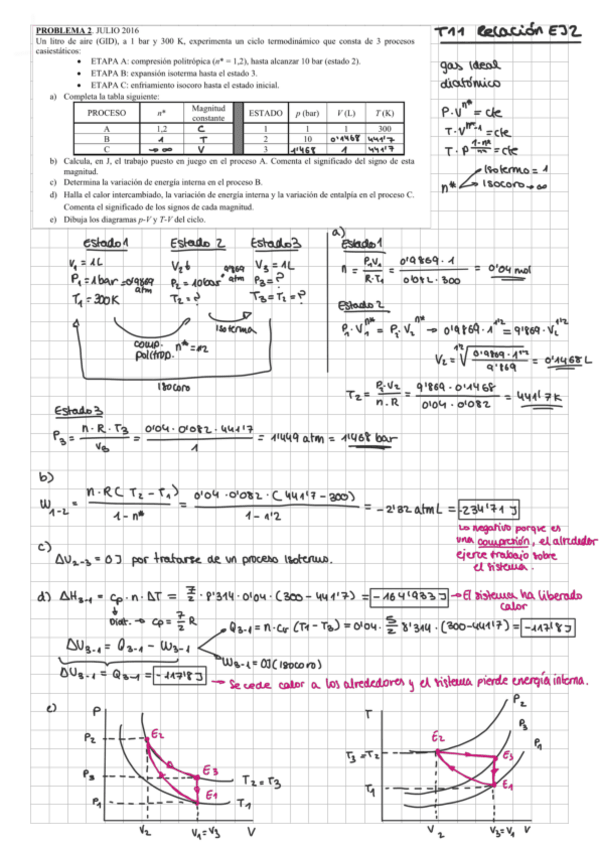 PROBLEMA 2. JULIO 2016
Un litro de aire (GID), a 1 bar y 300 K, experimenta un ciclo termodinámico que consta de 3 procesos
casiestáticos:
• ETAPA A: compresión politrópica (n* = 1,2), hasta alcanzar 10 bar (estado 2).
• ETAPA B: expansión isoterma hasta el estado 3.
• ETAPA C: enfriamiento isocoro hasta el estado inicial.
a) Completa la tabla siguiente:
PROCESO n* Magnitud constante ESTADO p (bar) V (L) T (K)
A 1,2 C 1 1 1 300
B 1 T 2 10 0'1468 441'7
C → ∞ V 3 1'468 1 441'7
b) Calcula, en J, el trabajo puesto en juego en el proceso A. Comenta el significado del signo de esta
magnitud.
c) Determina la variación de energía interna en el proceso B.
d) Halla el calor intercambiado, la variación de energía interna y la variación de entalpía en el proceso C.
Comenta el significado de los signos de cada magnitud.
e) Dibuja los diagramas p-V y T-V del ciclo.
T11 Relación EJ2
gas ideal
diatómico
P·V^n* = cte
T·V^n*-1 = cte
T·P^(1-n*)/n* = cte
n* Isotermo = 1
Isocoro → ∞
Estado 1 Estado 2 Estado 3
V₁ = 1L V₂ V₃ = 1L
P₁ = 1bar = 0'9869 atm P₂ = 10bar 9'869 atm P₃ = ?
T₁ = 300K T₂ = ? T₃ = T₂ = ?
comp. politrop. n* = 1'2
Isoterma
Isocoro
a)
Estado 1
n = P₁V₁ / R·T₁ = 0'9869·1 / 0'082·300 = 0'04 mol
Estado 2
P₁·V₁^n* = P₂·V₂^n* → 0'9869·1^1'2 = 9'869·V₂^1'2
V₂ = ^1'2√(0'9869·1^1'2 / 9'869) = 0'1468 L
T₂ = P₂·V₂ / n·R = 9'869·0'1468 / 0'04·0'082 = 441'7K
Estado 3
P₃ = n·R·T₃ / V₃ = 0'04·0'082·441'7 / 1 = 1'449 atm = 1'468 bar
b)
W₁₋₂ = n·R(T₂-T₁) / 1-n* = 0'04·0'082·(441'7-300) / 1-1'2 = -2'32 atmL = -234'71 J
Lo negativo porque es
una compresión, el alrededor
ejerce trabajo sobre
el sistema.
c)
ΔU₂₋₃ = 0J por tratarse de un proceso isotermo.
d) ΔH₃₋₁ = cp·n·ΔT = 7/2·8'314·0'04·(300-441'7) = -164'933 J → El sistema ha liberado
calor
Diat. → cp = 7/2 R
Q₃₋₁ = n·cv(T₁-T₃) = 0'04·5/2 8'314·(300-441'7) = -117'8J
ΔU₃₋₁ = Q₃₋₁ - W₃₋₁
W₃₋₁ = 0J (Isocoro)
ΔU₃₋₁ = Q₃₋₁ = -117'8J → Se cede calor a los alrededores y el sistema pierde energía interna.
e)
P
P₂
P₃
P₁
E2
E3
E1
T₂ = T₃
T₁
V₂ V₁=V₃ V
T
T₃=T₂
T₁
E2
E3
E1
P₂
P₃
P₁
V₂ V₃=V₁ V